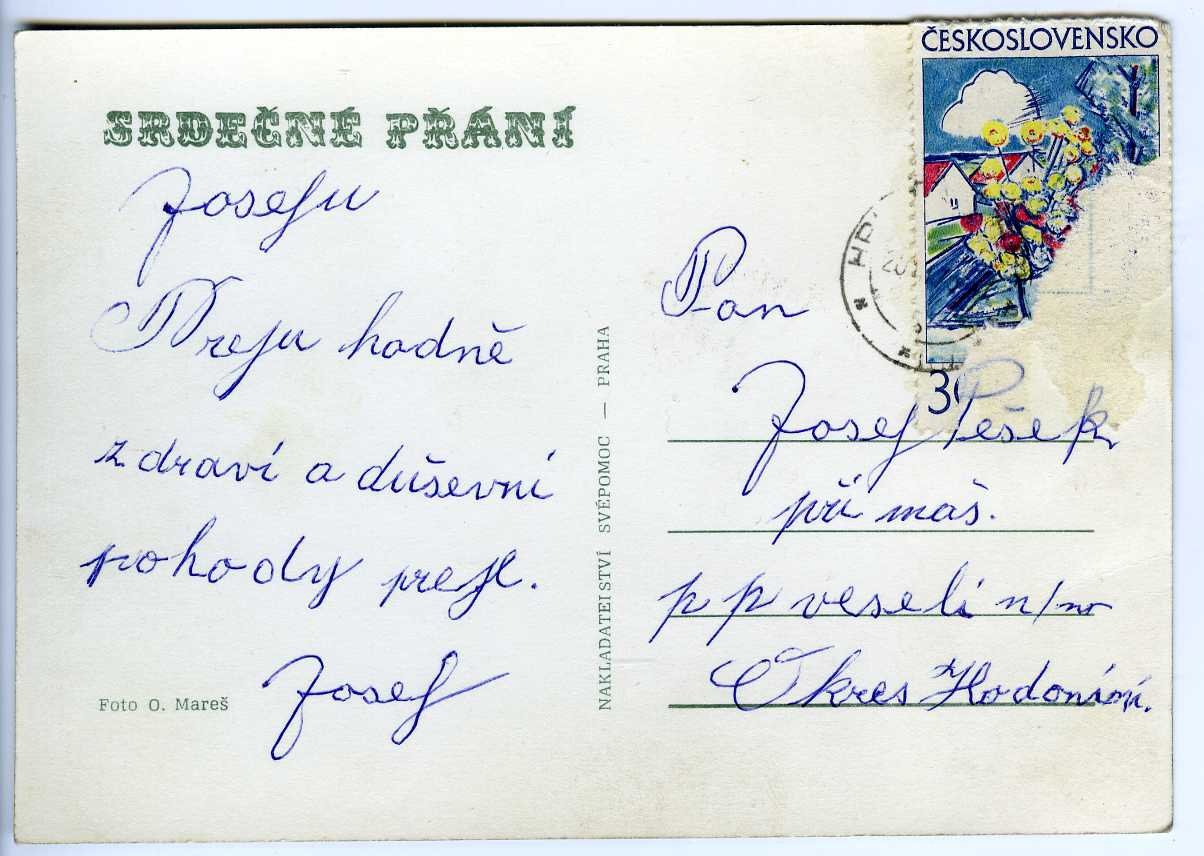 SRDEČNÉ PŘÁNÍ
Josefu
Přeju hodně
zdraví a duševní
pohody
Josef
Foto O. Mareš
NAKLADATELSTVÍ SVÉPOMOC — PRAHA
ČESKOSLOVENSKO
Pan
Josef Pešek
při máš.
p p veselí n/m
Okres Hodonín